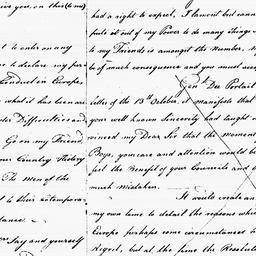 ive you, on this (to me)
t to enter on any
e to declare my par
Conduct in Europe,
what it has been are
ter Difficulties and
Go on my Friend,
our Country. History
The men of the
t to their extempora
tance
Say and yourself
had a right to expect, I lament but cann
puts it out of my Power to do many things w
to my Friends is amongst the Number. M
be of much consequence and you must accep
Gen.l De Portail
letter of the 13th October, it manifests that
your well known Sincerity had taught
vinced my Dear Sir that the moment
Boys, your care and attention would be
feel the Benefit of your Councils and
much Mistaken.
It would create an
my own time to detail the reasons whic
Europe perhaps some circumstances
Regret, but at the same the Resolute